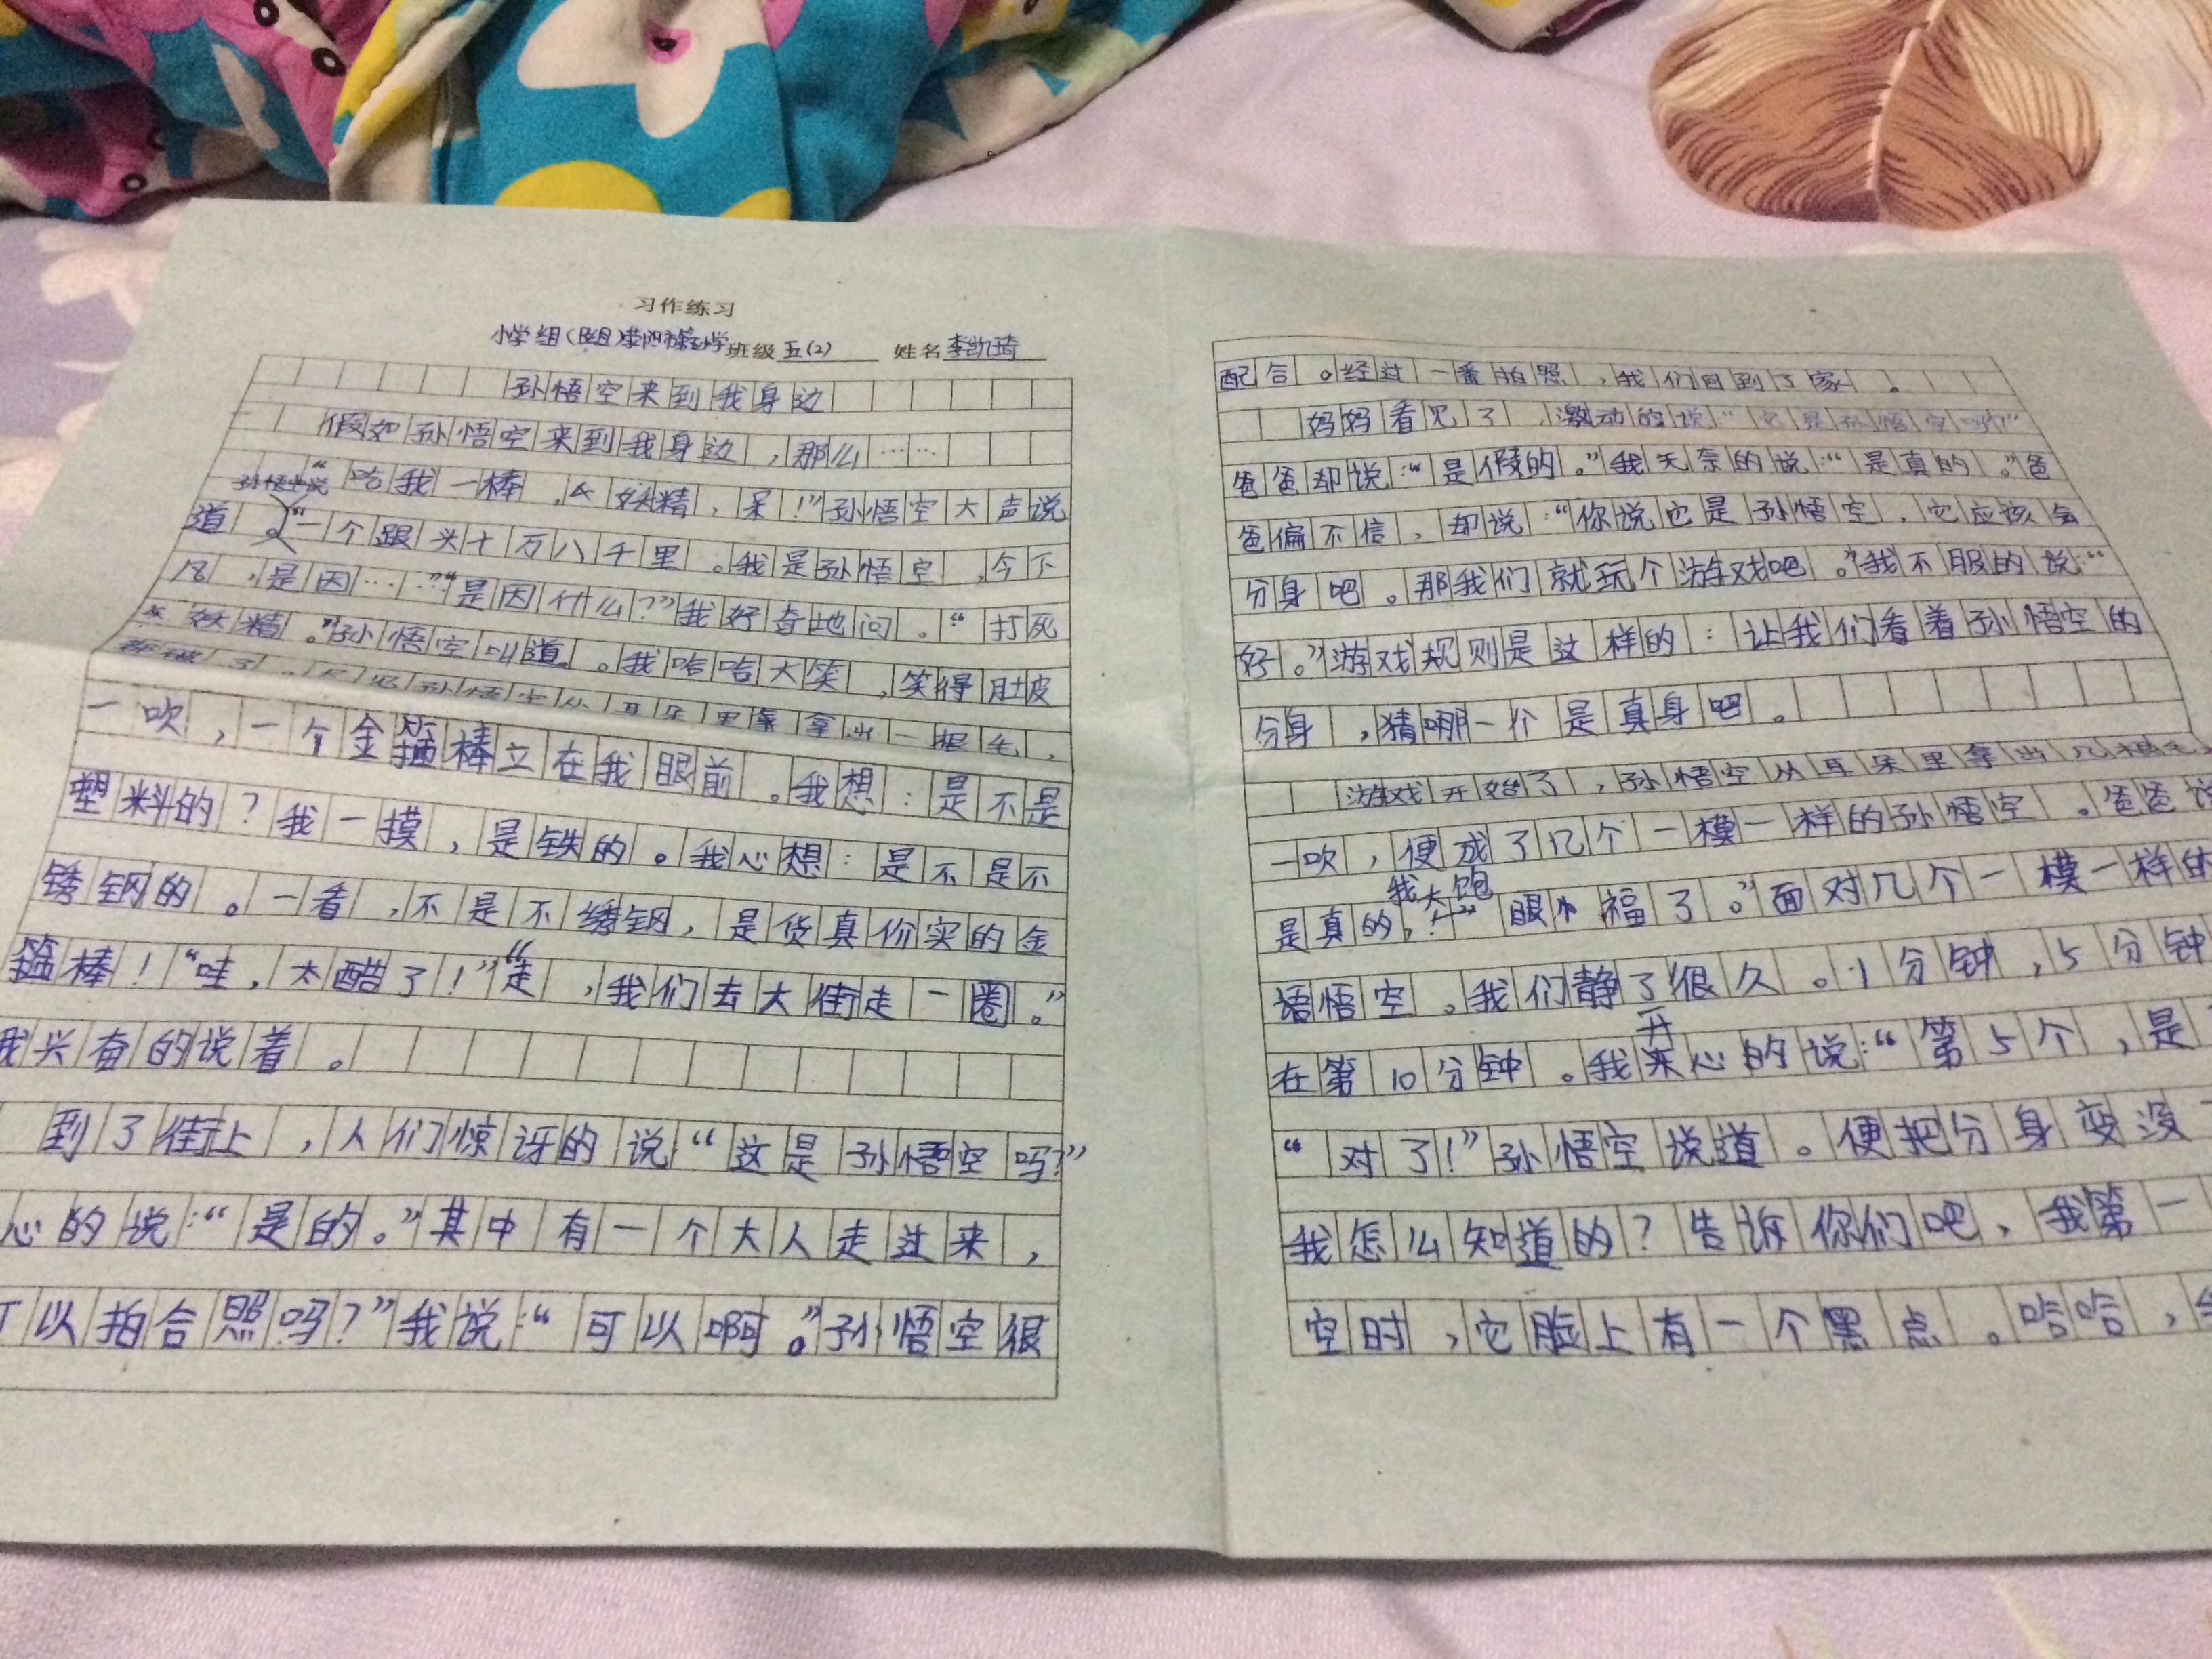 习作练习
小学组 班级 五(2) 姓名 李凯琦
孙悟空来到我身边
假如孙悟空来到我身边，那么……
“吃我一棒，幺妖精，呆！”孙悟空大声说
孙悟空说
道。“一个跟头十万八千里。我是孙悟空，今下
凡，是因……”“是因什么？”我好奇地问。“打死
幺妖精。”孙悟空叫道。我哈哈大笑，笑得肚皮
都破了。只见孙悟空从耳朵里拿出一根毛，
一吹，一个金箍棒立在我眼前。我想：是不是
塑料的？我一摸，是铁的。我心想：是不是不
锈钢的。一看，不是不绣钢，是货真价实的金
箍棒！“哇，太酷了！”“走，我们去大街走一圈。”
我兴奋的说着。
到了街上，人们惊讶的说“这是孙悟空吗？”
心的说：“是的。”其中有一个大人走过来，
可以拍合照吗？”我说：“可以啊。”孙悟空很
配合。经过一番拍照，我们回到了家。
妈妈看见了，激动的说“它是孙悟空吗？”
爸爸却说：“是假的。”我无奈的说：“是真的。”爸
爸偏不信，却说：“你说它是孙悟空，它应该会
分身吧。那我们就玩个游戏吧。”我不服的说：“
好。”游戏规则是这样的：让我们看着孙悟空的
分身，猜哪一个是真身吧。
游戏开始了，孙悟空从耳朵里拿出几根毛，
一吹，便成了几个一模一样的孙悟空。爸爸说
我大饱
是真的，！”眼福了。”面对几个一模一样的
悟悟空。我们静了很久。1分钟，5分钟
开
在第10分钟。我心的说：“第5个，是
“对了！”孙悟空说道。便把分身变没了
我怎么知道的？告诉你们吧，我第一
空时，它脸上有一个黑点。哈哈，